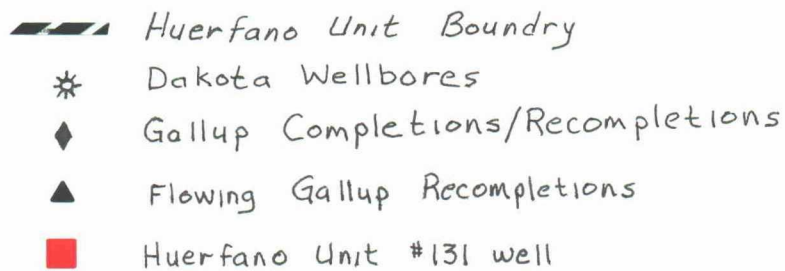 Huerfano Unit Boundry
Dakota Wellbores
Gallup Completions/Recompletions
Flowing Gallup Recompletions
Huerfano Unit #131 well